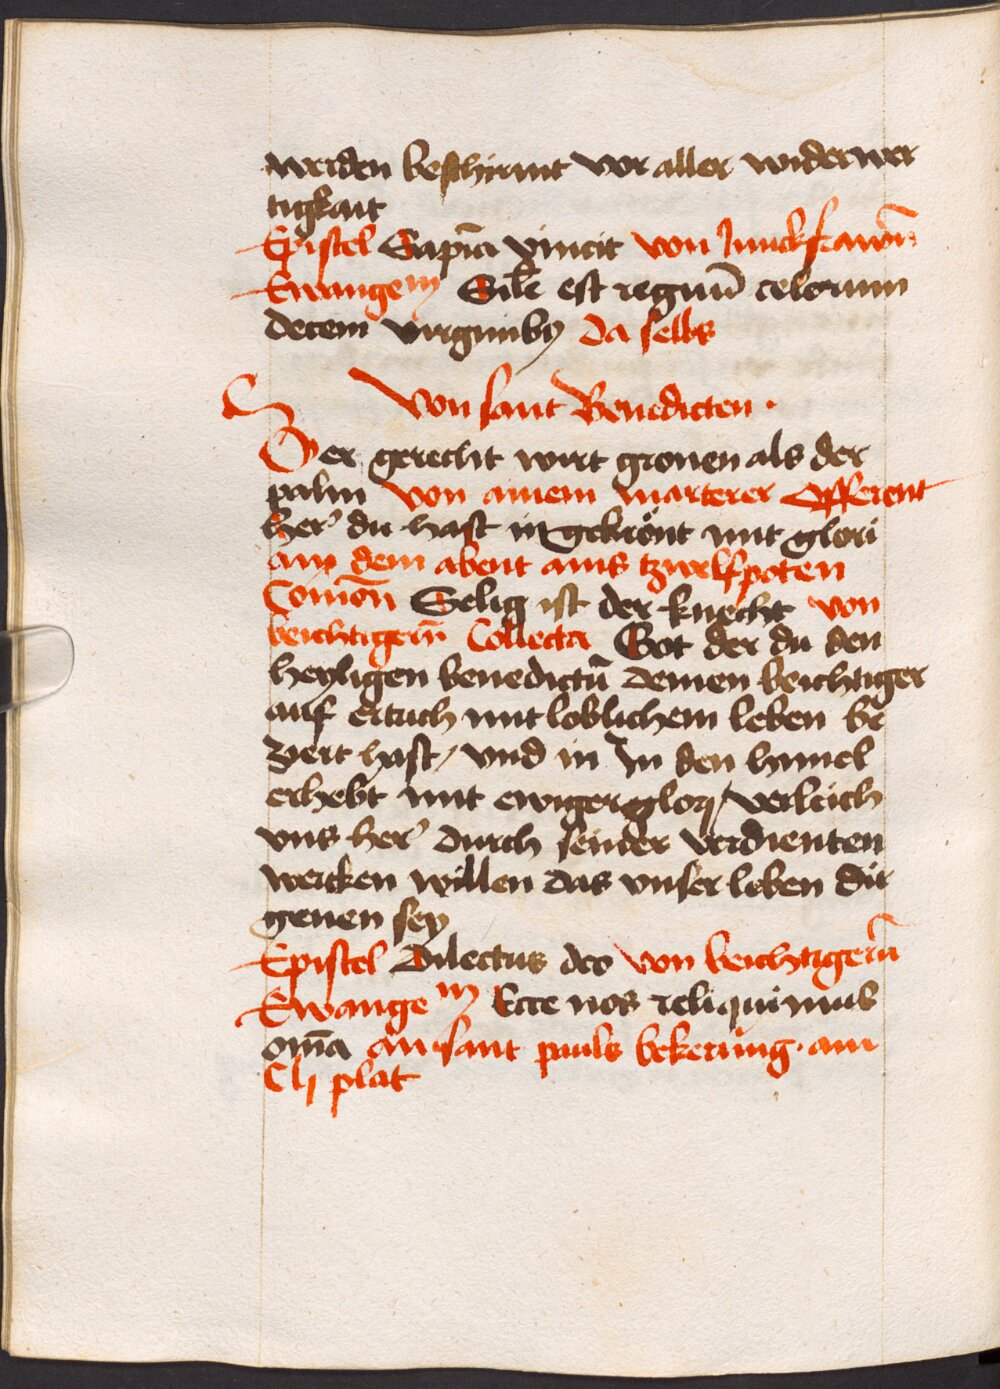 werden beschirmt vor aller widerwer
tigkait
Epistel Sapīa vincit von Junckfrawn̄
Ewange m Sil̄e est regnū celorum
decem virginibꝫ da selbs
Von sant Benedicten ·
Der gerecht wirt gronen als der
palm von ainem marterer Offerent
her' du hast in gekrönt mit glori
am dem abent ains tzwelfpoten
Comōn Selig ist der knecht von
beichtigern̄ Collecta Got der du den
heyligen benedictū deinen beichtiger
auf ertrich mit loblichem leben be
ziert hast / und in in den himel
erhebt mit ewiger glory / verleich
uns her' durch seiner verdienten
wercken willen das unser leben dir
geuen sey
Epistel Dilectus deo von beichtigern̄
Ewange m Ecce nos reliquimus
om̄a an sant pauls bekerung · am
Cli plat